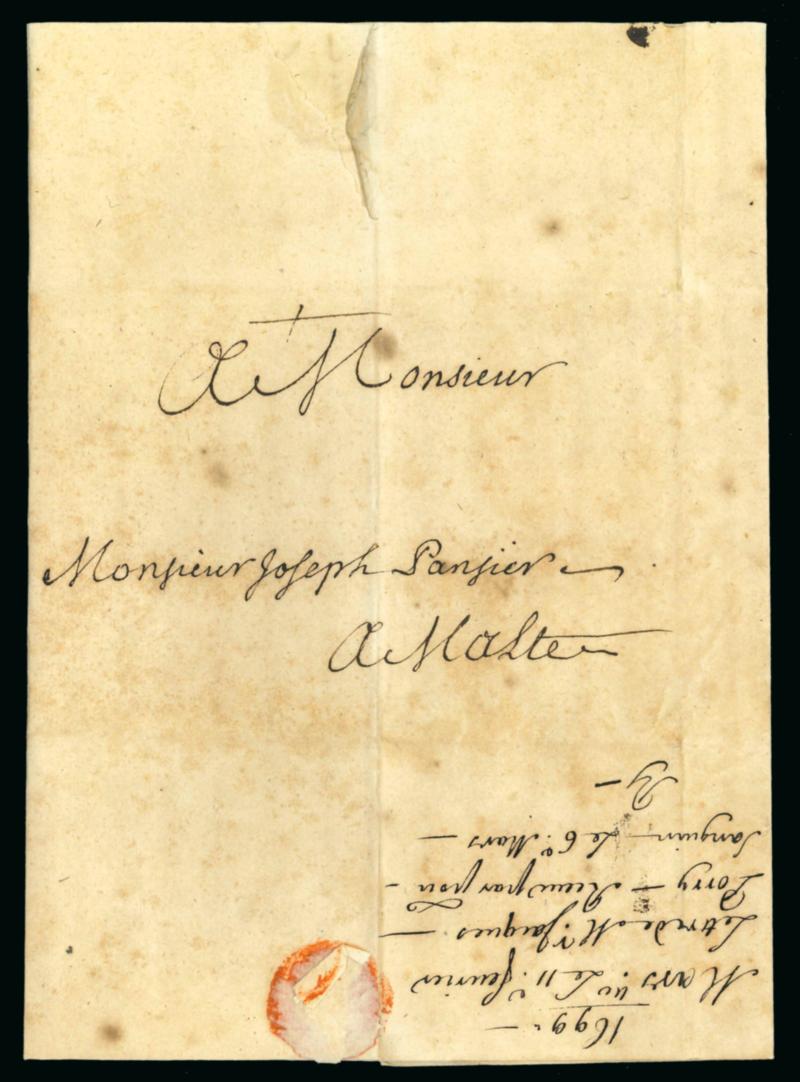 A Monsieur
Monsieur Joseph Pansier
A Malte
1699
Mars lle Le 11e feurier
Lettre de Mr Jaques
Porry — Receu par pan
Sanguin — Le 6e Mars
Ry